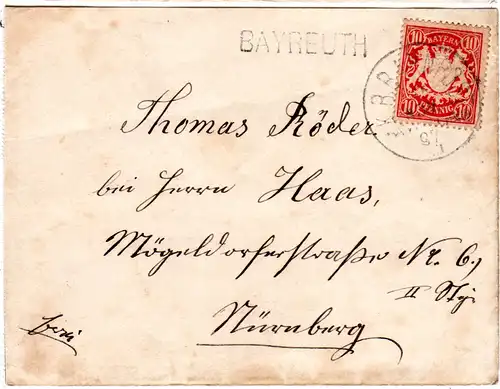 BAYREUTH
BAYERN
10 10
10 PFENNIG 10
Thomas Röder
bei Herrn Haas,
Mögeldorferstraße Nr. 6,
II Stg.
Nürnberg